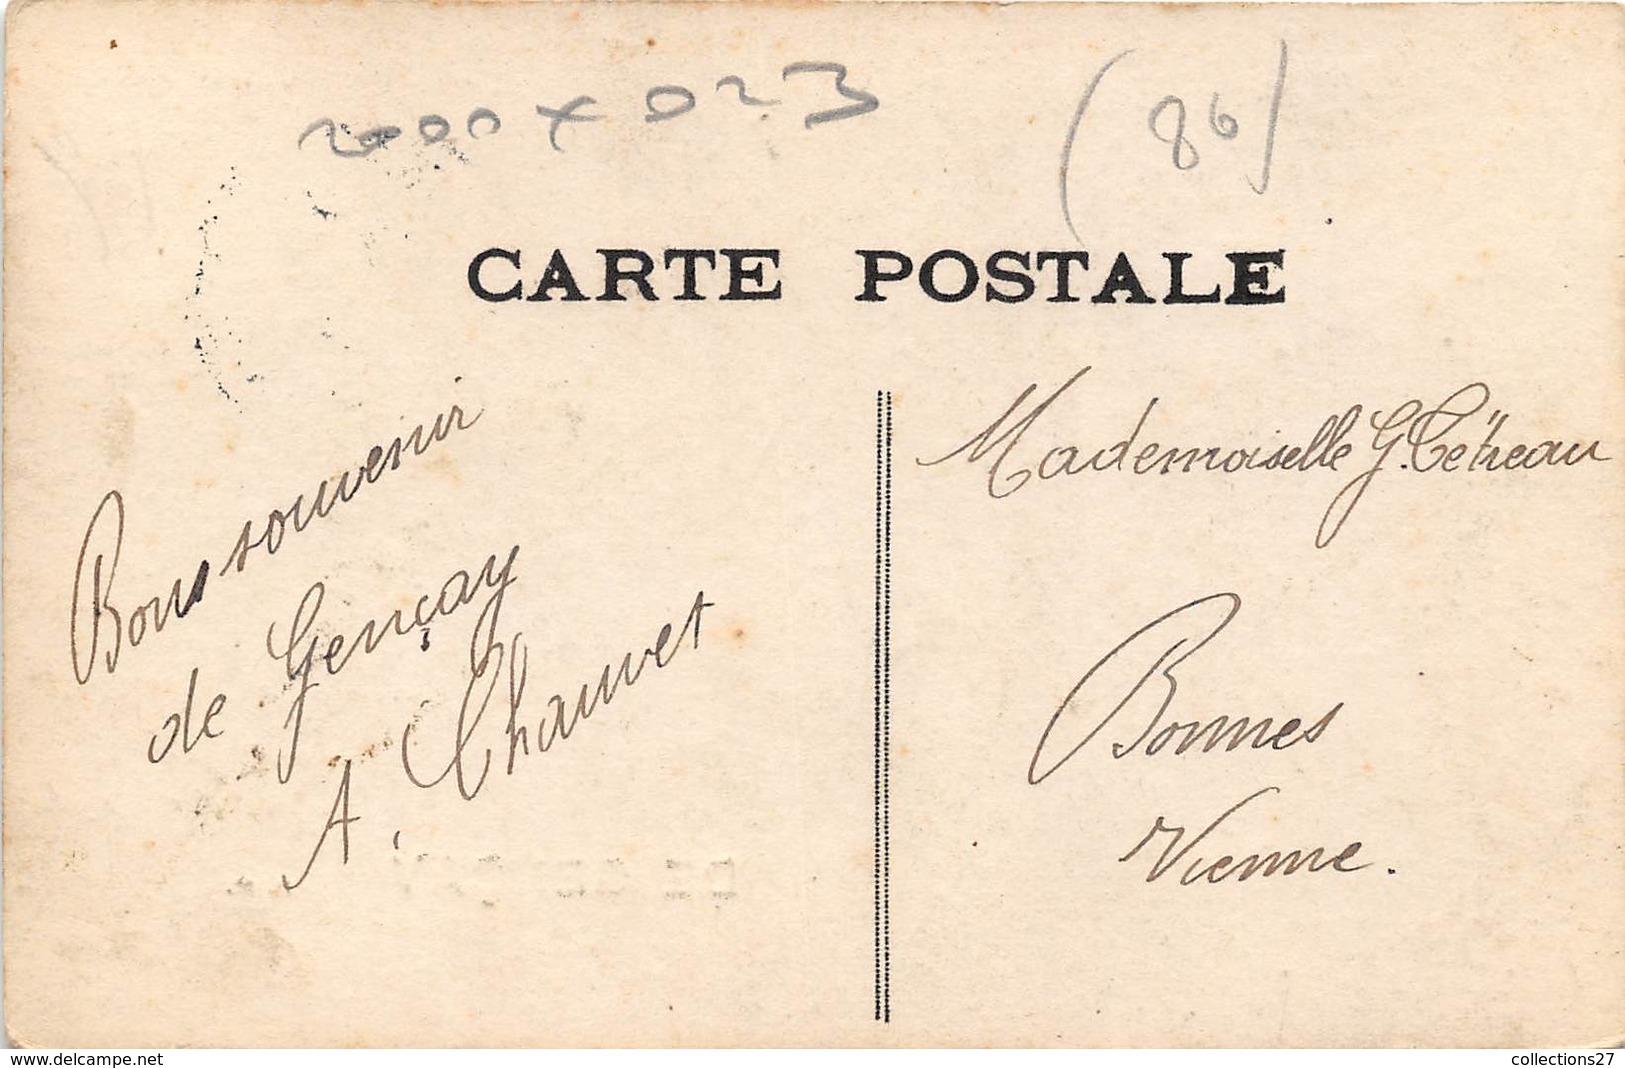 2000 x 023
(86)
CARTE POSTALE
Bons souvenir
de Gençay
A. Chauvet
Mademoiselle G. Tétreau
Bonnes
Vienne.
www.delcampe.net
collections27